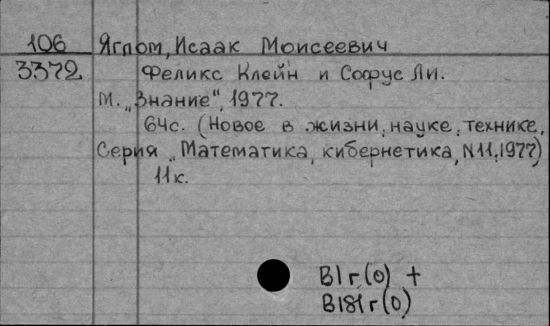 106 Яглом, Исаак Моисеевич
3372 Феликс Клейн и Софус Ли.
М. „Знание“, 1977.
64с. (Новое в жизни, науке, технике,
Серия „Математика, кибернетика, N11, 1977)
11к.
В1г(0) +
В181г(0)